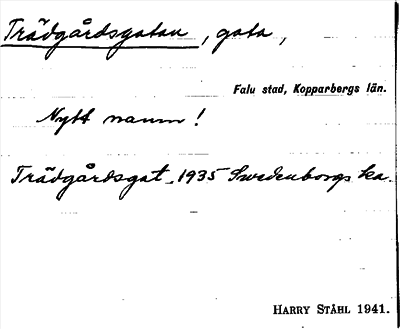 Trädgårdsgatan, gata,
Falu stad, Kopparbergs län.
Nytt namn!
Trädgårdsgat. 1935 Swedenborgs ka.
HARRY STÅHL 1941.